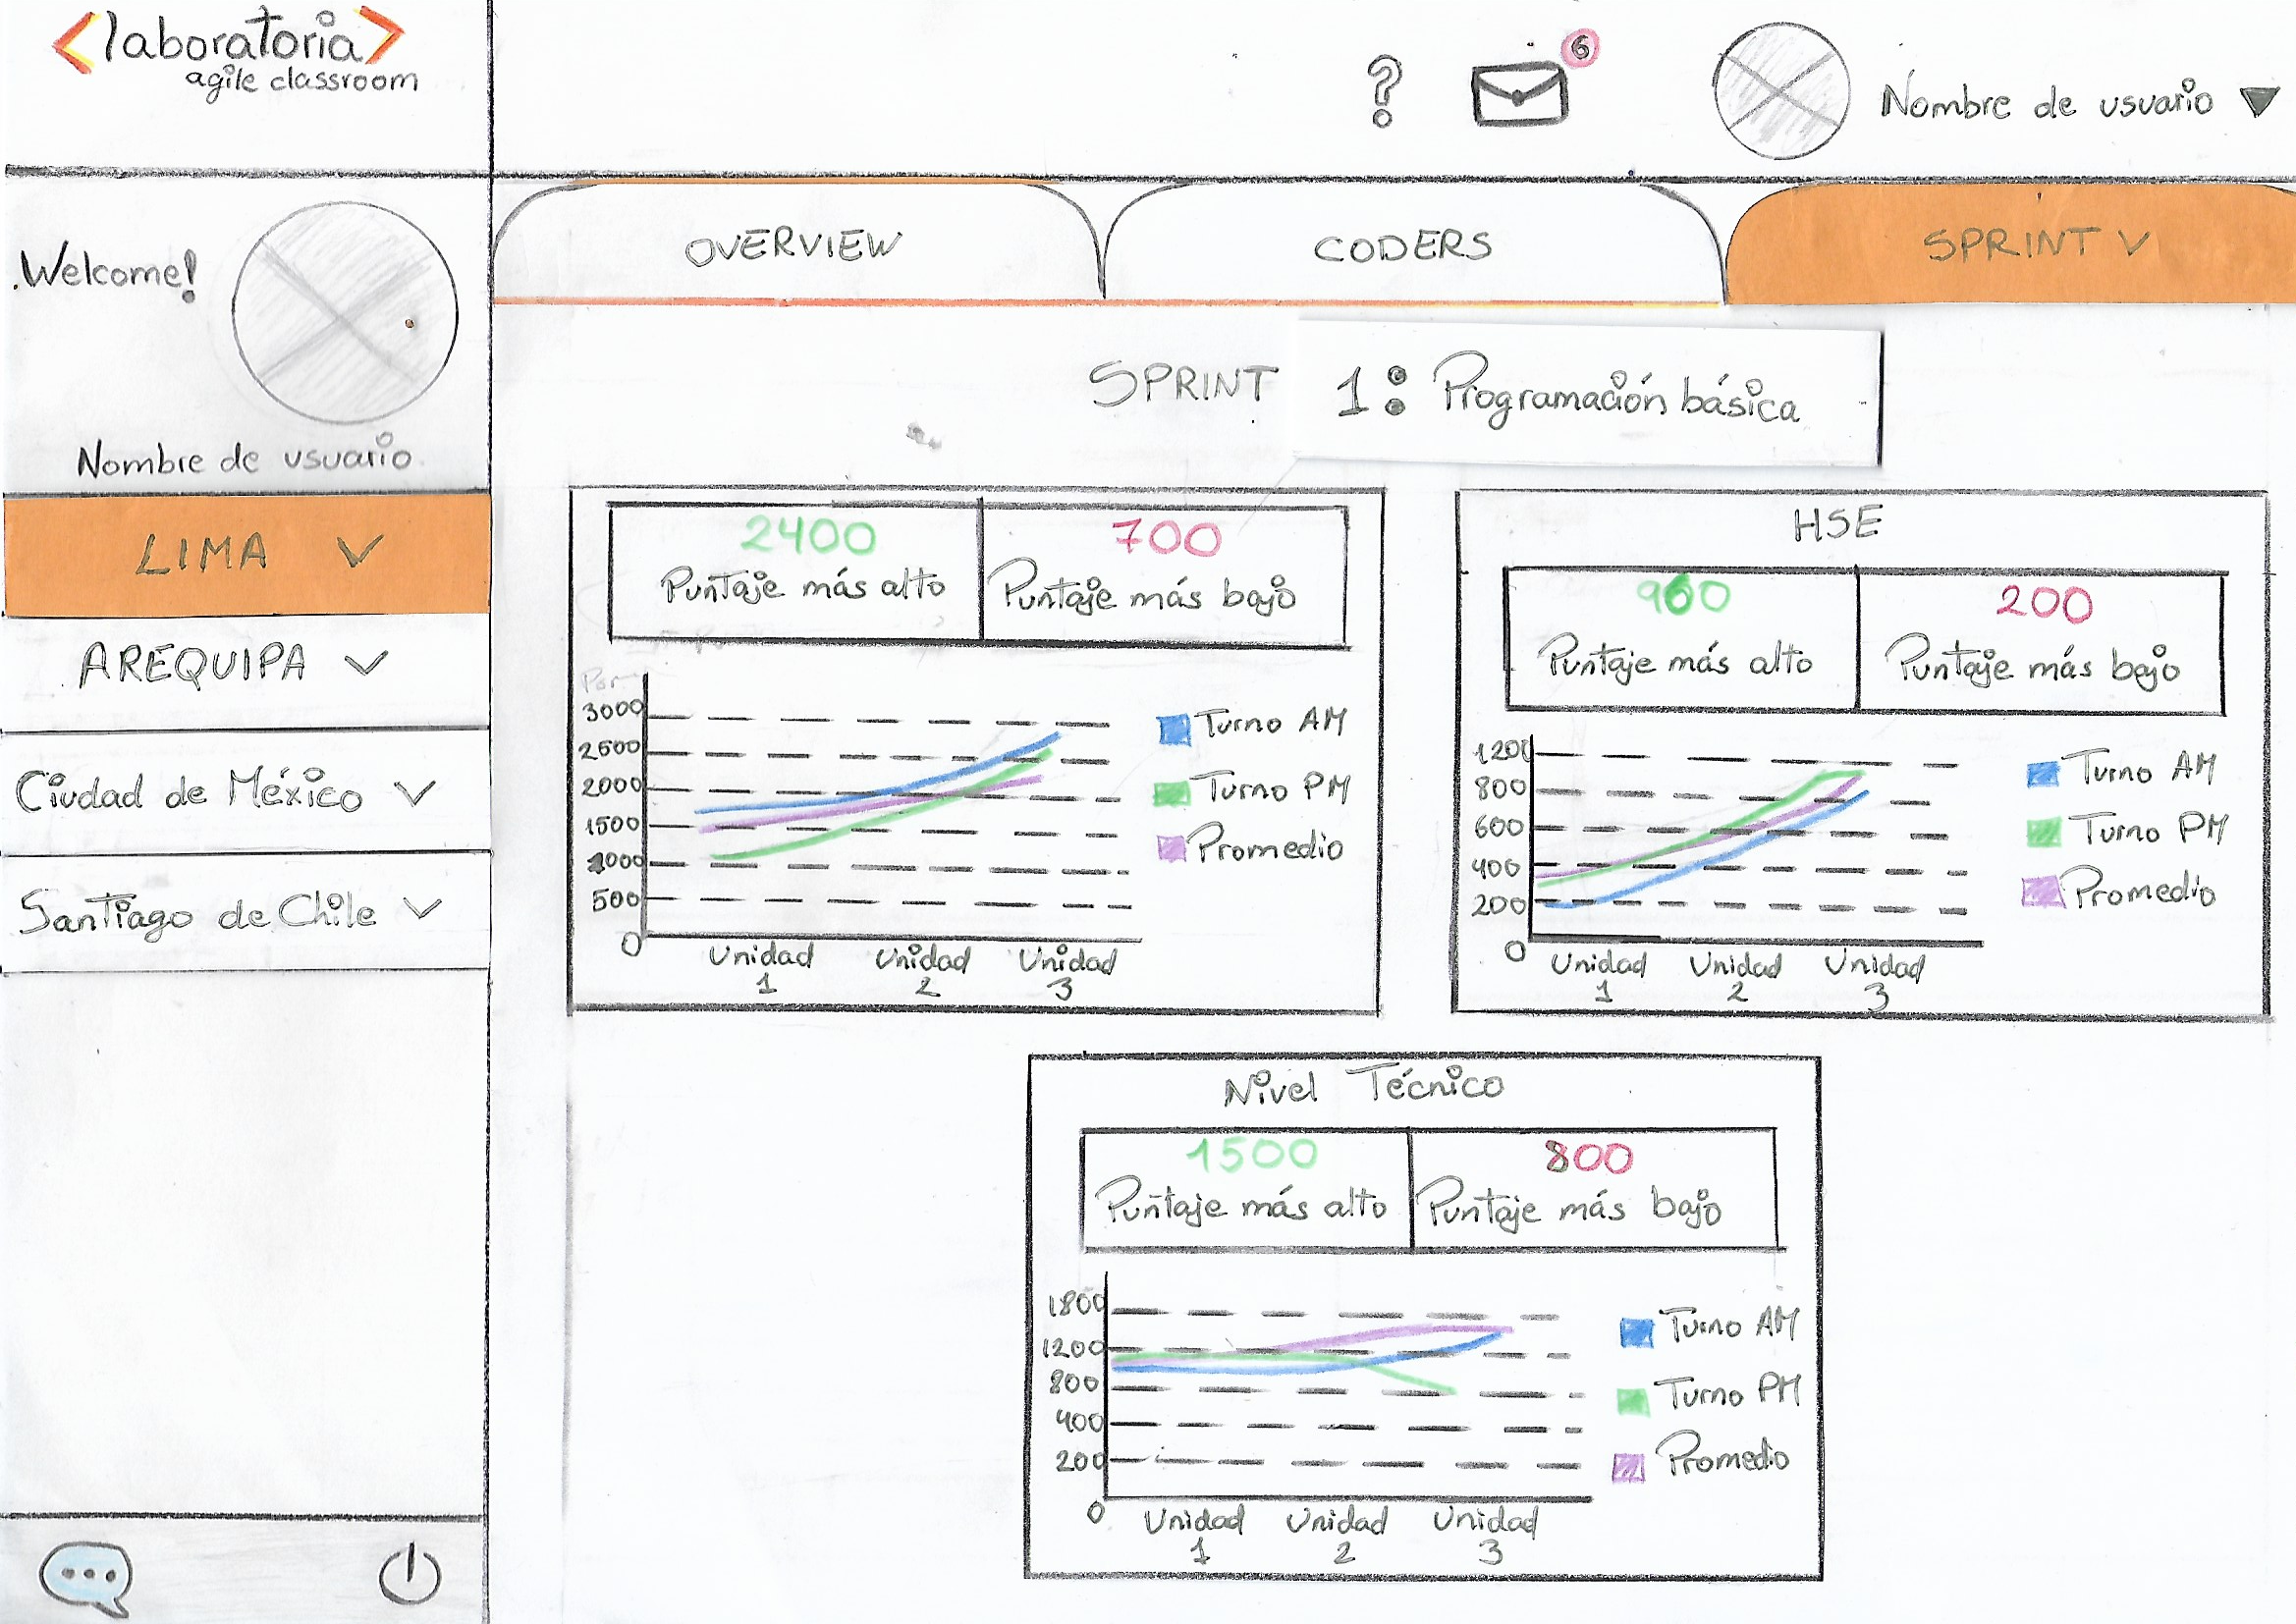 <laboratoria>
agile classroom
?
6
Nombre de usuario
Welcome!
Nombre de usuario
LIMA
AREQUIPA
Ciudad de México
Santiago de Chile
OVERVIEW
CODERS
SPRINT
SPRINT 1: Programación básica
2400
Puntaje más alto
700
Puntaje más bajo
3000
2500
2000
1500
1000
500
0
Unidad 1
Unidad 2
Unidad 3
Turno AM
Turno PM
Promedio
HSE
900
Puntaje más alto
200
Puntaje más bajo
1200
800
600
400
200
0
Unidad 1
Unidad 2
Unidad 3
Turno AM
Turno PM
Promedio
Nivel Técnico
1500
Puntaje más alto
800
Puntaje más bajo
1800
1200
800
400
200
0
Unidad 1
Unidad 2
Unidad 3
Turno AM
Turno PM
Promedio